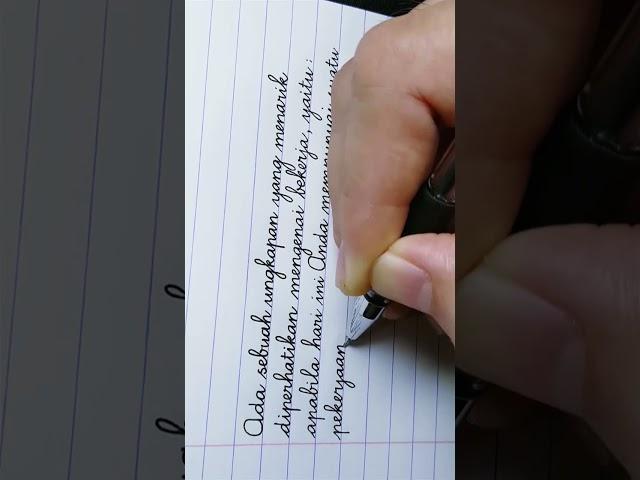 Ada sebuah ungkapan yang menarik
diperhatikan mengenai bekerja, yaitu :
apabila hari ini Anda mempunyai suatu
pekerjaan